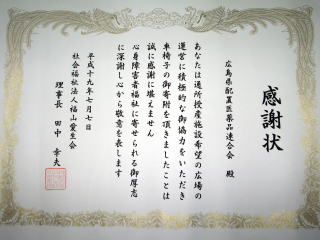 感謝状
広島県配置医薬品連合会 殿
あなたは通所授産施設希望の広場の
運営に積極的な御協力をいただき
車椅子の御寄附を頂きましたことは
誠に感謝に堪えません
心身障害者福祉に寄せられる御厚志
に深謝し心から敬意を表します
平成十九年七月七日
社会福祉法人福山愛生会
理事長 田中 幸夫